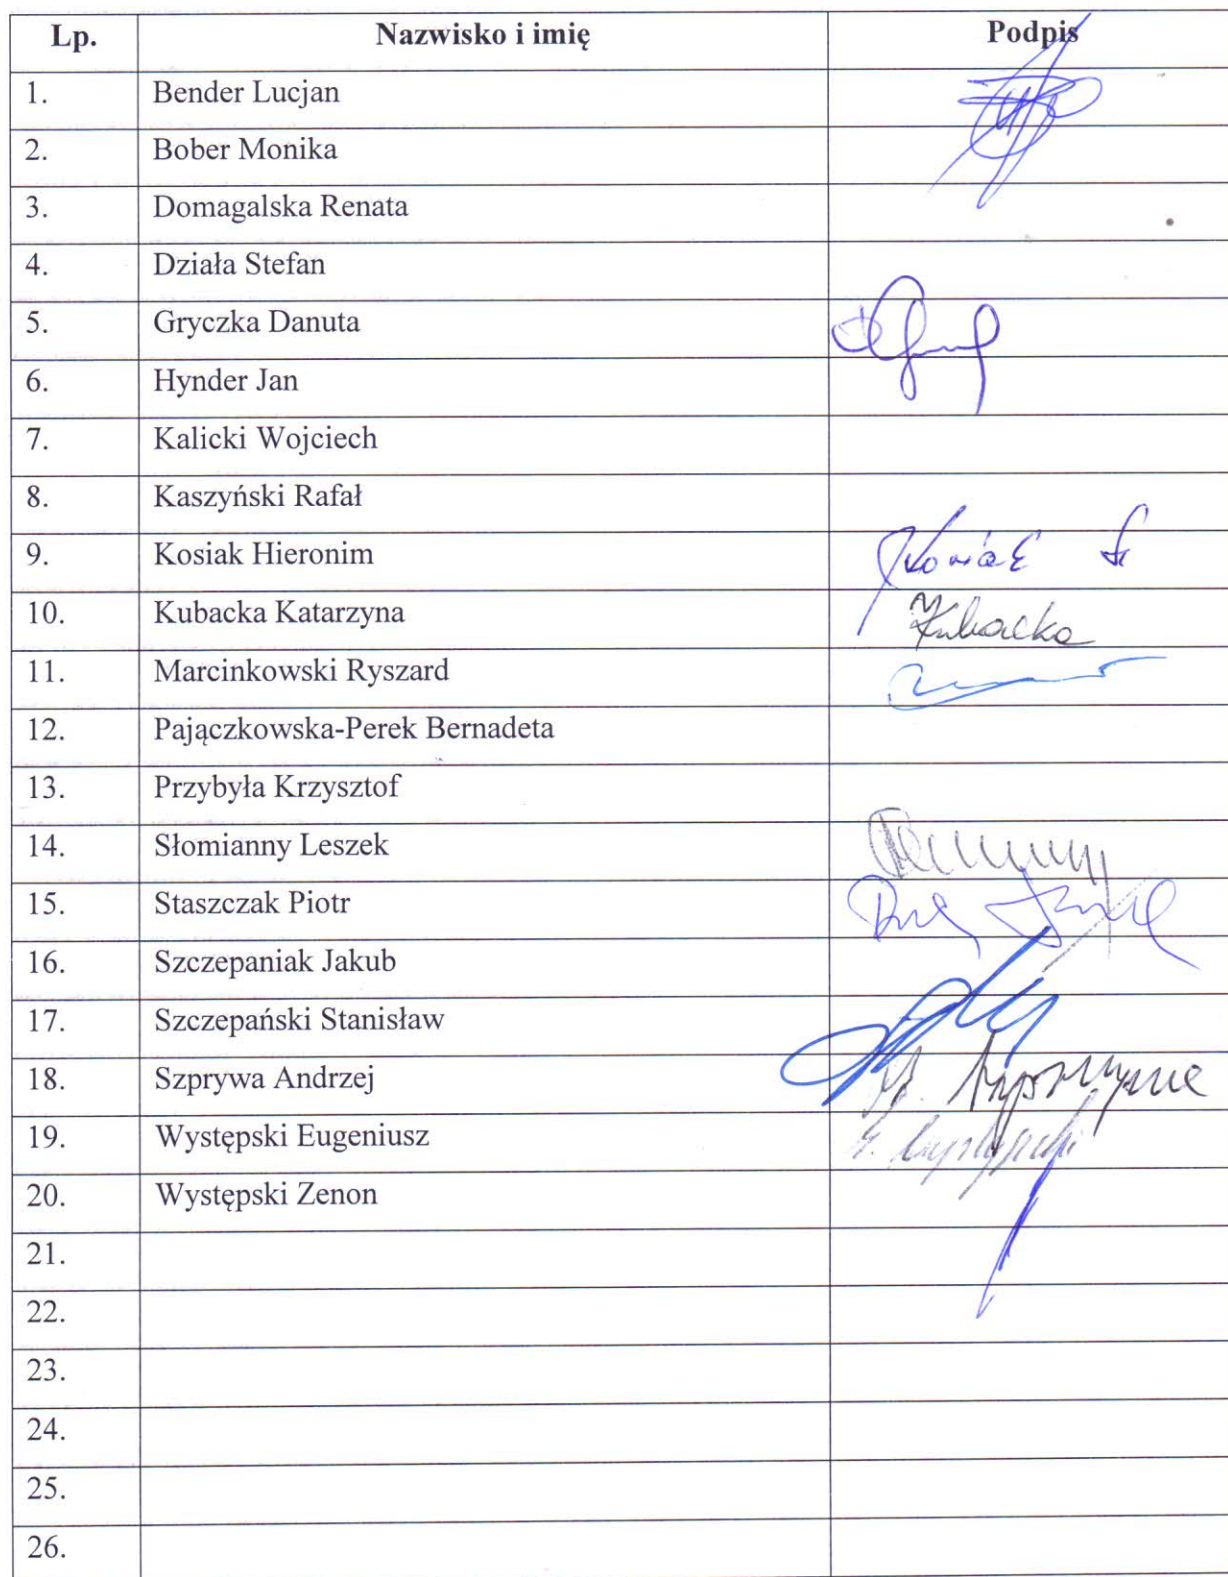 Lp. Nazwisko i imię Podpis
1. Bender Lucjan
2. Bober Monika
3. Domagalska Renata
4. Działa Stefan
5. Gryczka Danuta
6. Hynder Jan
7. Kalicki Wojciech
8. Kaszyński Rafał
9. Kosiak Hieronim Kosiak
10. Kubacka Katarzyna Kubacka
11. Marcinkowski Ryszard
12. Pajączkowska-Perek Bernadeta
13. Przybyła Krzysztof
14. Słomianny Leszek
15. Staszczak Piotr
16. Szczepaniak Jakub
17. Szczepański Stanisław
18. Szprywa Andrzej
19. Występski Eugeniusz
20. Występski Zenon
21.
22.
23.
24.
25.
26.